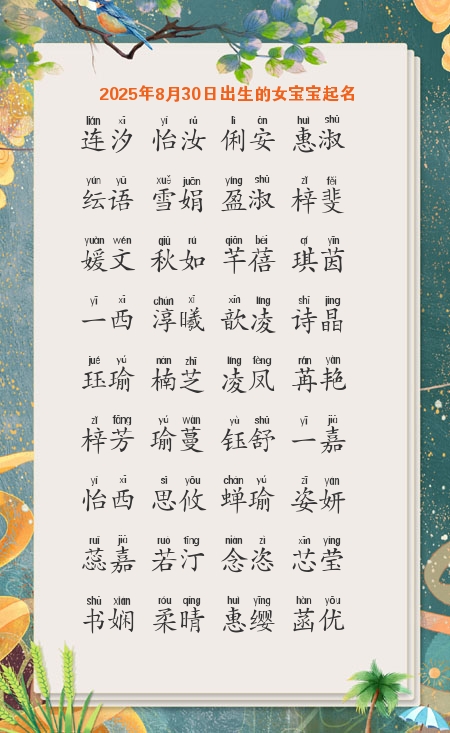 2025年8月30日出生的女宝宝起名
lián xī yí rǔ lì ān huì shū
连汐 怡汝 俐安 惠淑
yún yǔ xuě juān yíng shū zǐ fěi
纭语 雪娟 盈淑 梓斐
yuàn wén qiū rú qiān bèi qí yīn
媛文 秋如 芊蓓 琪茵
yī xī chún xī xīn líng shī jīng
一西 淳曦 歆凌 诗晶
jué yú nán zhī líng fèng rǎn yàn
珏瑜 楠芝 凌凤 苒艳
zǐ fāng yú wàn yù shū yī jiā
梓芳 瑜蔓 钰舒 一嘉
yí xī sī yōu chán yú zī yán
怡西 思攸 蝉瑜 姿妍
ruǐ jiā ruò tīng niàn zī xīn yíng
蕊嘉 若汀 念恣 芯莹
shū xián róu qíng huì yīng hàn yōu
书娴 柔晴 惠缨 菡优